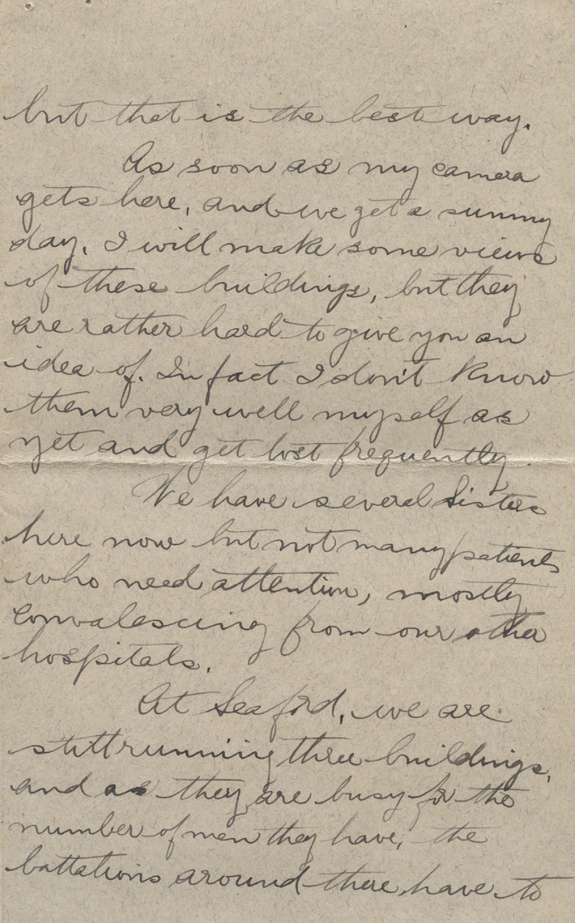 but that is the best way.
As soon as my camera
gets here, and we get a sunny
day, I will make some views
of these buildings, but they
are rather hard to give you an
idea of. In fact I don't know
them very well myself as
yet and get lost frequently.
We have several Sisters
here now but not many patients
who need attention, mostly
convalescing from our other
hospitals.
At Seaford, we are
still running three buildings,
and as they are busy for the
number of men they have, the
battations around there, have to